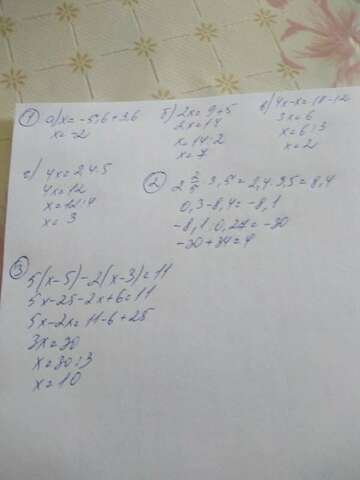 ① а) x = -5,6 + 3,6
x = -2
б) 2x = 9 + 5
2x = 14
x = 14 : 2
x = 7
в) 4x - x = 18 - 12
3x = 6
x = 6 : 3
x = 2
г)
4x = 2,4 · 5
4x = 12
x = 12 : 4
x = 3
② 2 2/5 · 3,5 = 2,4 · 3,5 = 8,4
0,3 - 8,4 = -8,1
-8,1 : 0,27 = -30
-30 + 34 = 4
③ 5(x - 5) - 2(x - 3) = 11
5x - 25 - 2x + 6 = 11
5x - 2x = 11 - 6 + 25
3x = 30
x = 30 : 3
x = 10